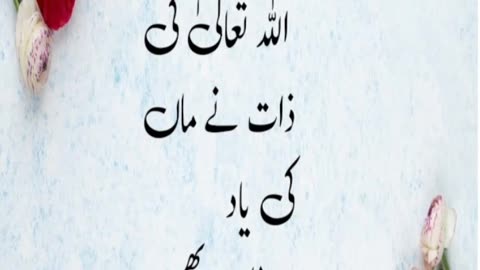 اللہ تعالیٰ کی
ذات نے ماں
کی یاد